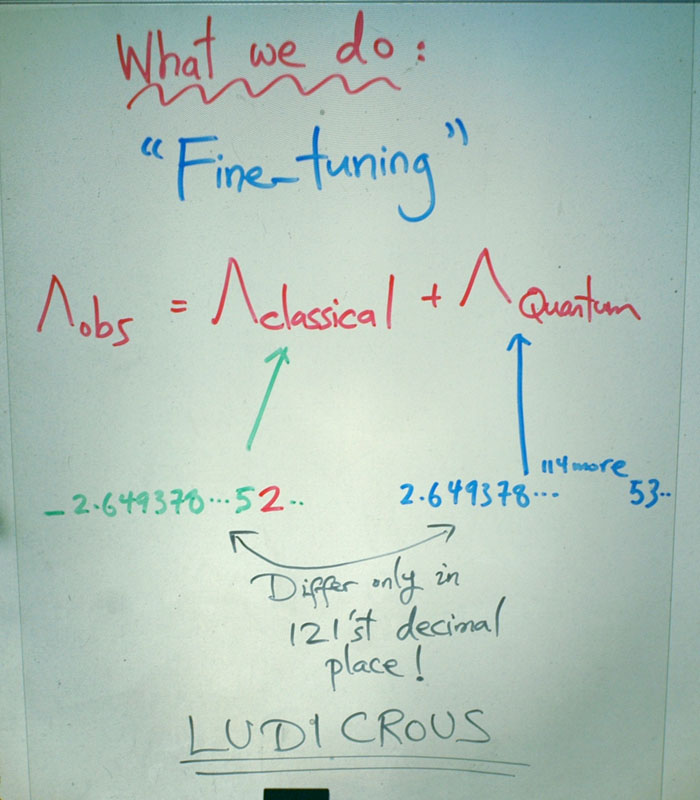 What we do:
"Fine-tuning"
Λobs = Λclassical + ΛQuantum
114 more
-2.649378...52.. 2.649378... 53..
Differ only in
121'st decimal
place!
LUDICROUS